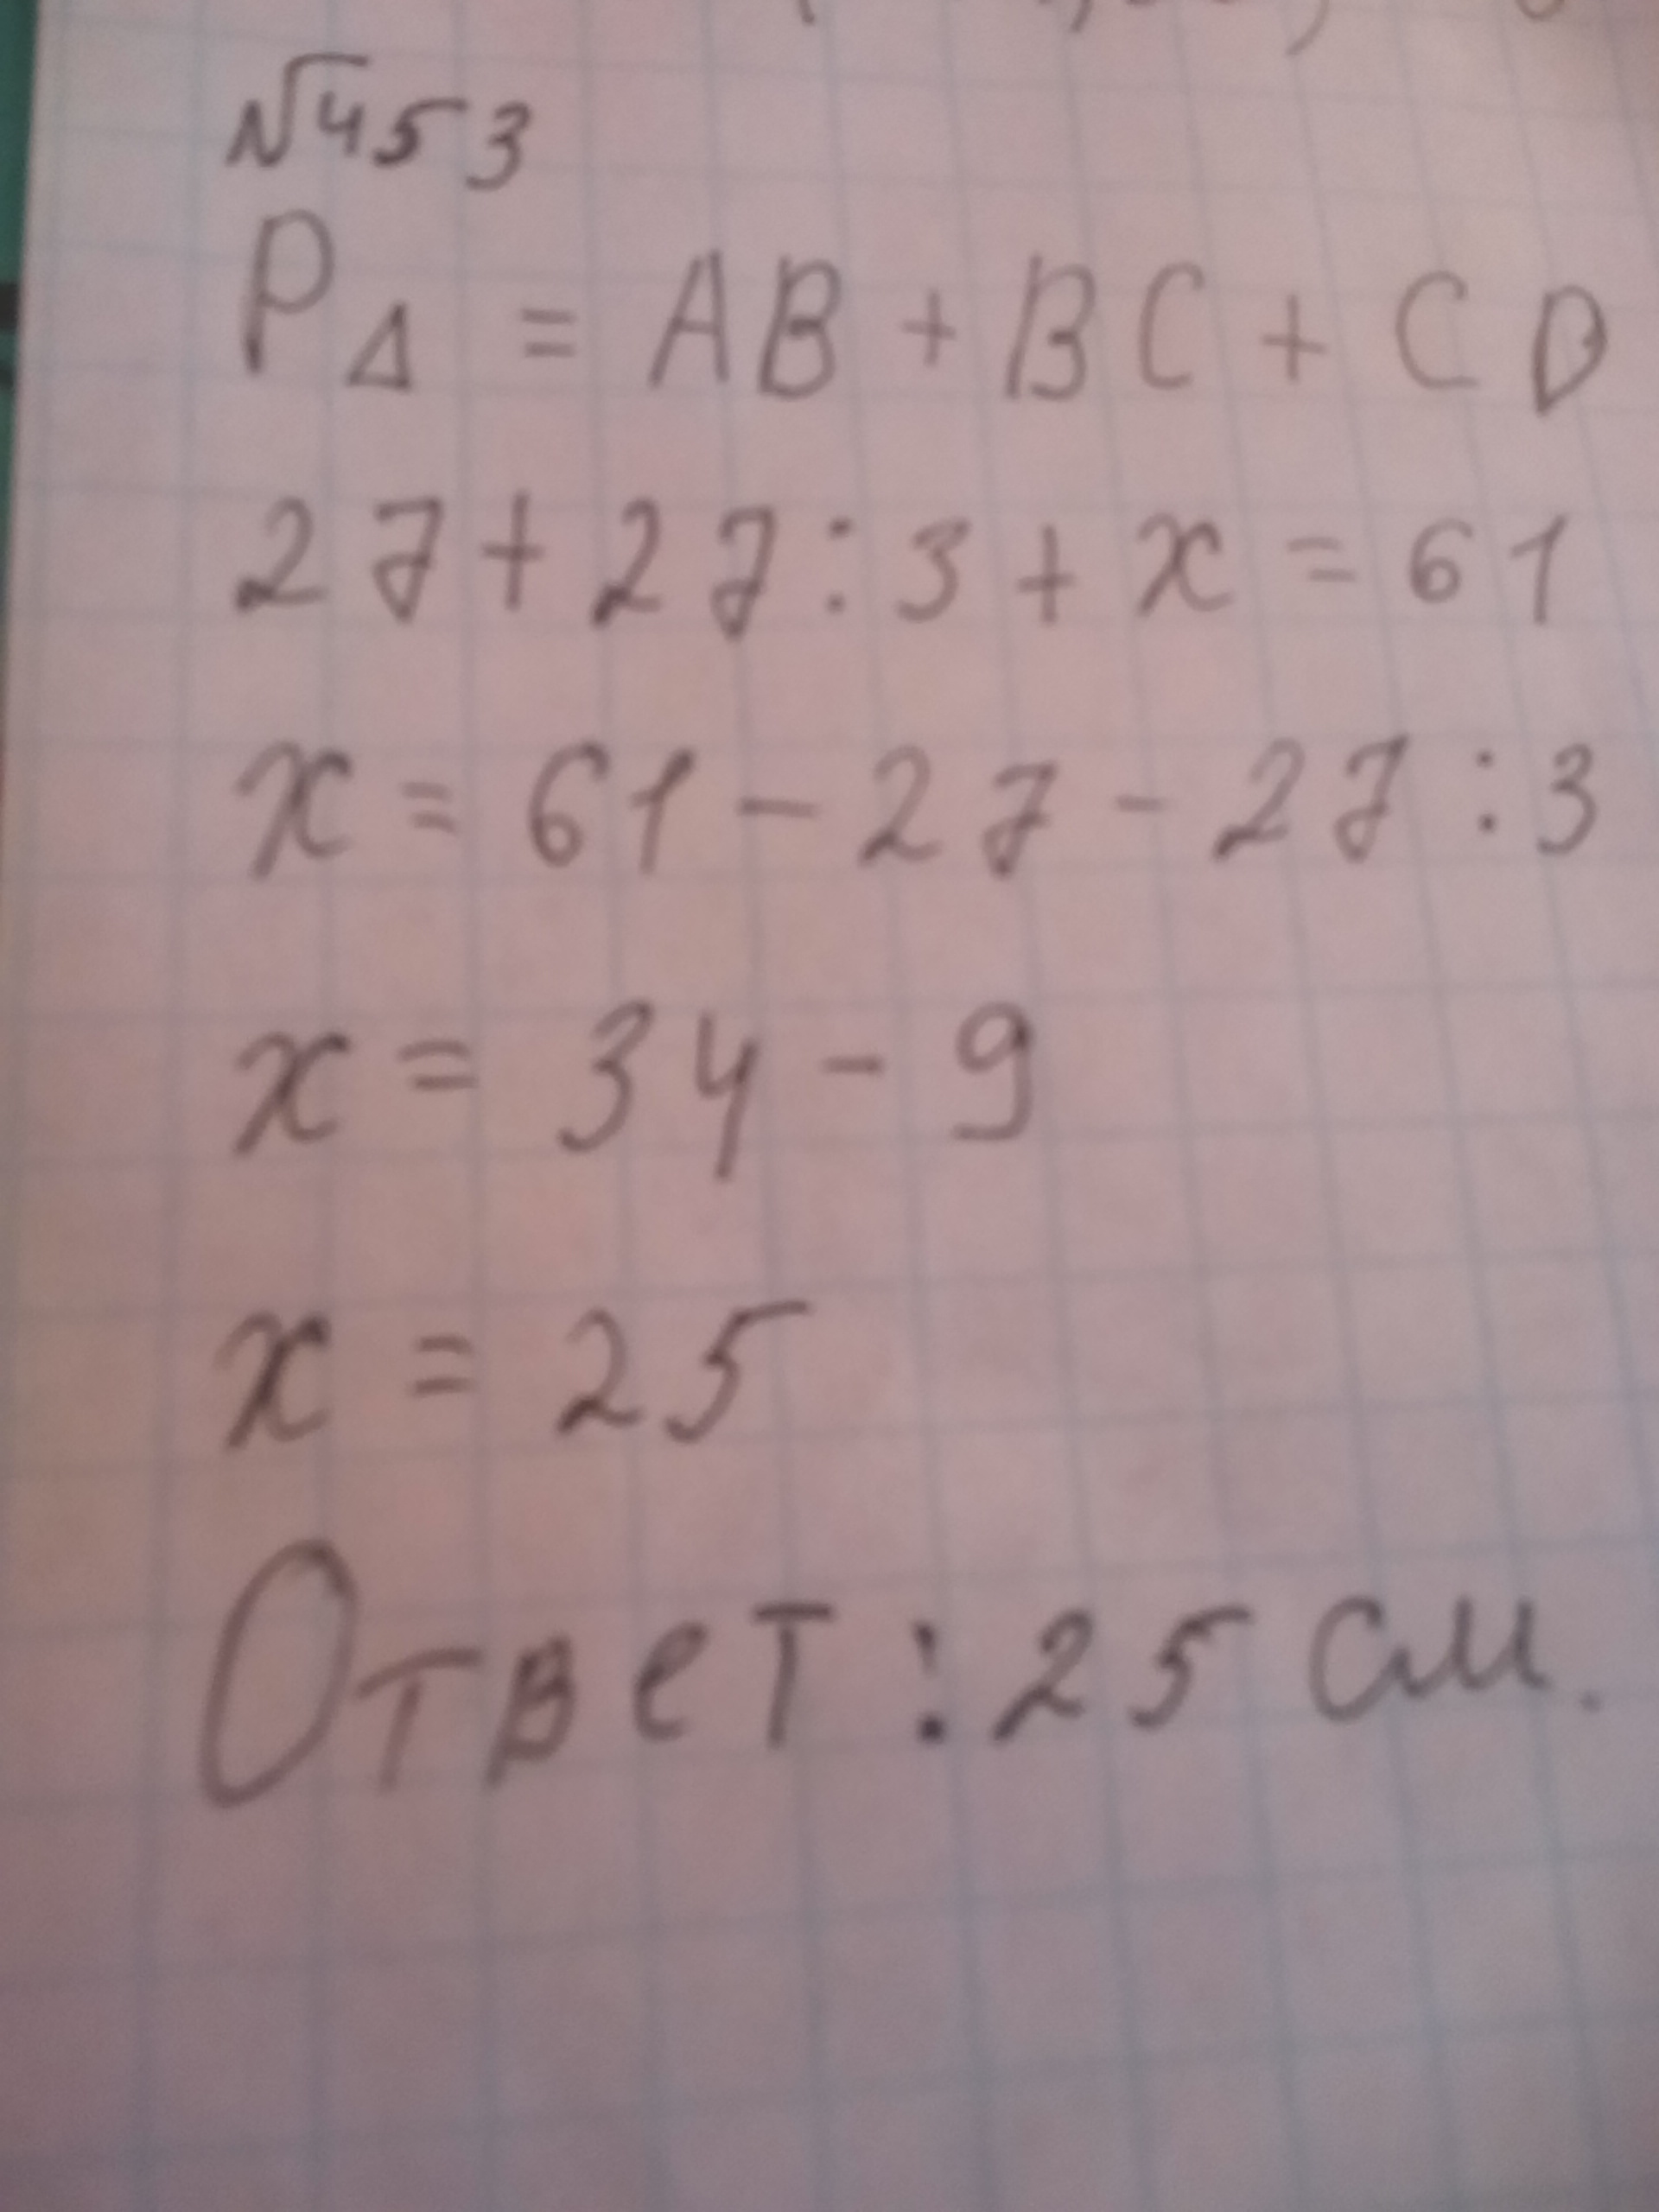 №453
P△ = AB + BC + CD
27 + 27 : 3 + x = 61
x = 61 - 27 - 27 : 3
x = 34 - 9
x = 25
Ответ : 25 см.